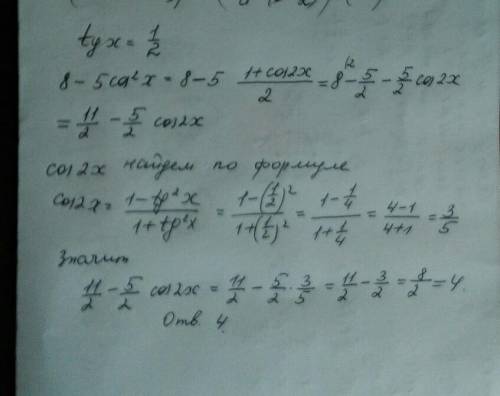 tg x = 1/2
8 - 5cos²x = 8 - 5 (1+cos2x)/2 = 8 - 5/2 - 5/2 cos2x
= 11/2 - 5/2 cos 2x
cos 2x найдем по формуле
cos2x = (1 - tg²x)/(1 + tg²x) = (1-(1/2)²)/(1+(1/2)²) = (1 - 1/4)/(1 + 1/4) = (4-1)/(4+1) = 3/5
Значит
11/2 - 5/2 cos2x = 11/2 - 5/2 · 3/5 = 11/2 - 3/2 = 8/2 = 4.
Отв. 4.